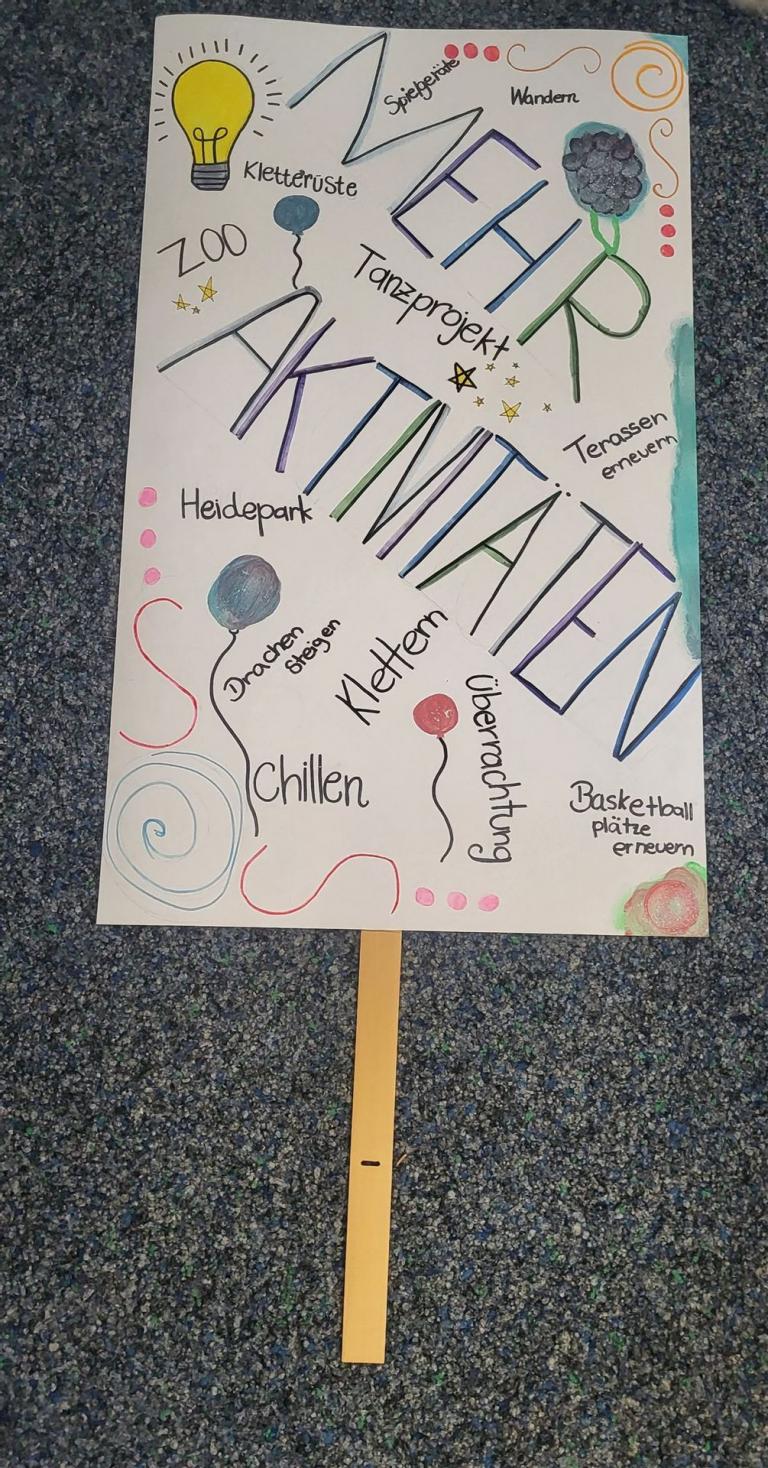 Spielgeräte
Wandern
MEHR
Kletterüste
ZOO
Tanzprojekt
AKTIVITÄTEN
Terassen
erneuern
Heidepark
Drachen
steigen
Klettern
Überrachtung
Chillen
Basketball
plätze
erneuern